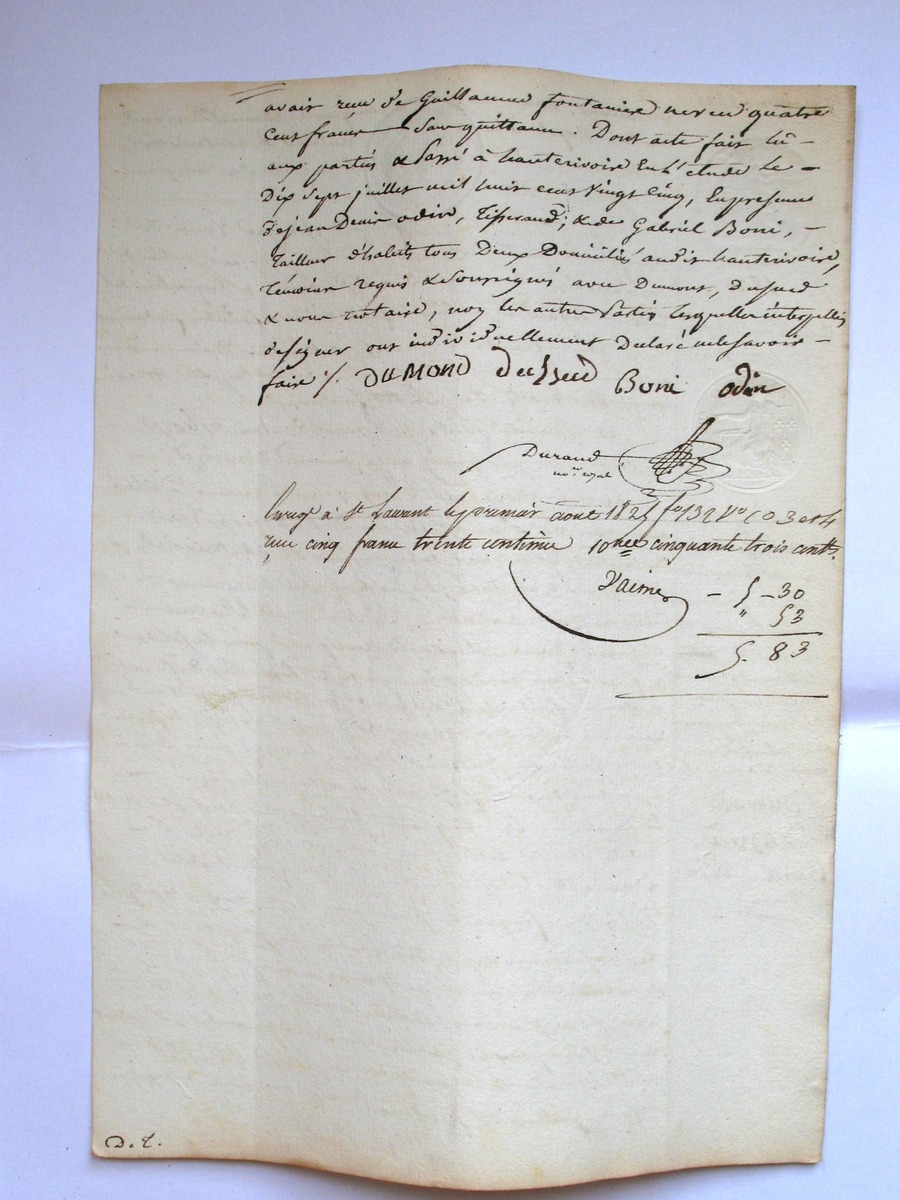 avair reçu de Guillaume fontanière neveu quatre
Cent francs dont quittance. Dont acte fait lû -
aux parties & passé à hauterivoire En l'etude Le -
Dix sept juillet mil huit cent vingt cinq, En presence
de jean Denis odin, Tisserand; & de Gabriel Boni, -
Tailleur d'habits tous Deux Domiciliés audit hauterivoire,
témoins requis & soussignés avec Dumond,
& nous notaire, non les autres Parties lesquelles interpellées
de signer ont individuellement Declaré ne le savoir -
faire ./. DUMOND Boni odin
Durand
no.re royal
Enreg à St Laurent le premier aout 1825 fo 132 Vo c 3 et 4
reçu cinq francs trente centimes 10me cinquante trois cent.
Daime
- 5 - 30
" 53
5. 83
D. T.